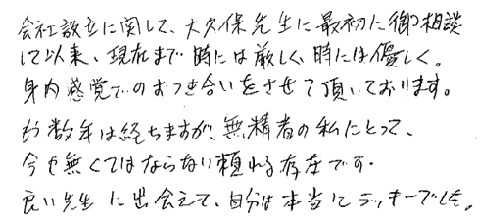 会社設立に関して、大久保先生に最初に御相談
して以来、現在まで時には厳しく、時には優しく。
身内感覚でのおつき合いをさせて頂いております。
もう数年は経ちますが、無精者の私にとって、
今も無くてはならない頼れる存在です。
良い先生に出会えて、自分は本当にラッキーでした。